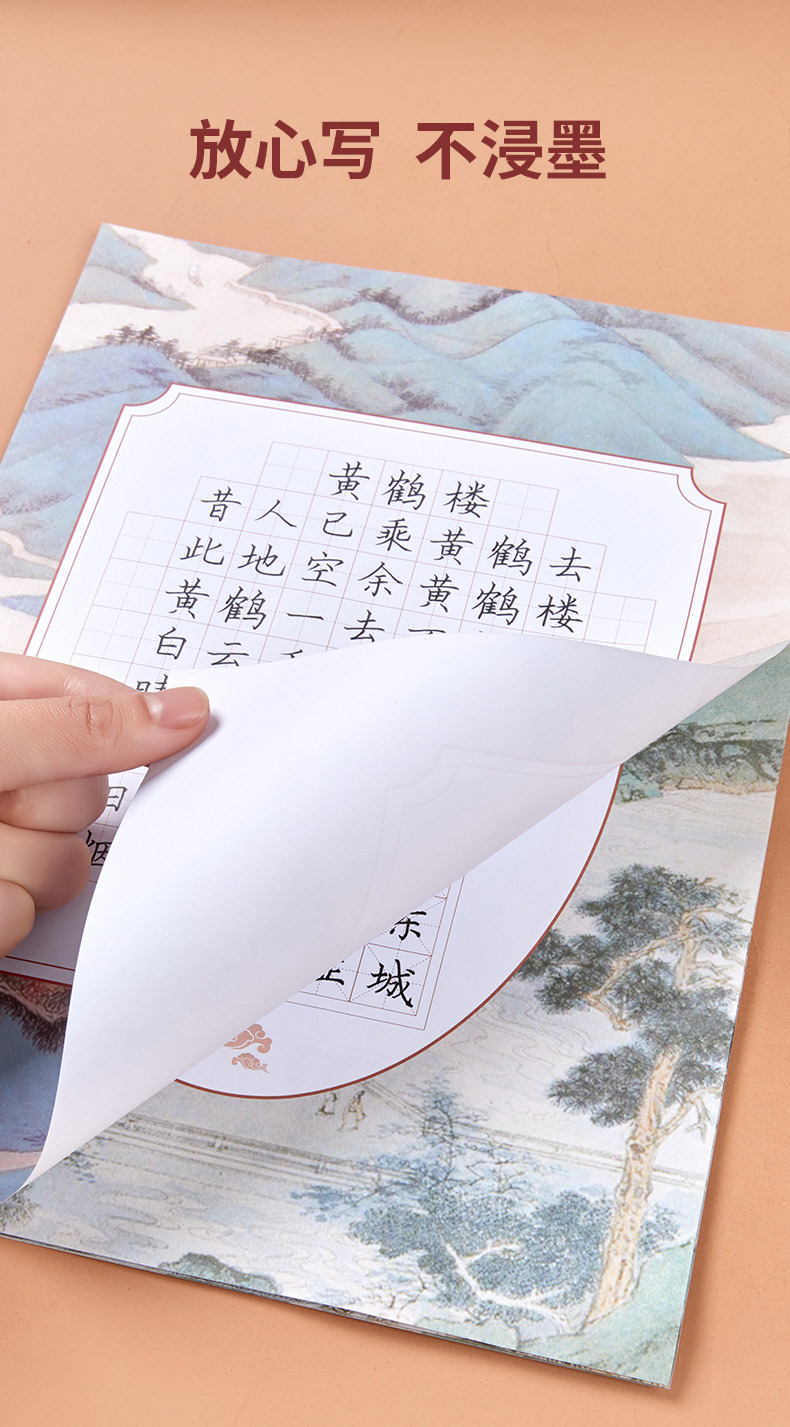 放心写 不浸墨
黄鹤楼
昔人已乘黄鹤去
此地空余黄鹤楼
黄鹤一去
白云
城